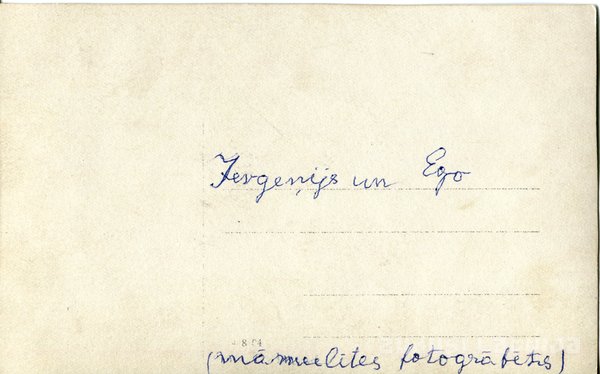 Jevgeņijs un Ego
(māmuelītes fotogrāfēts)